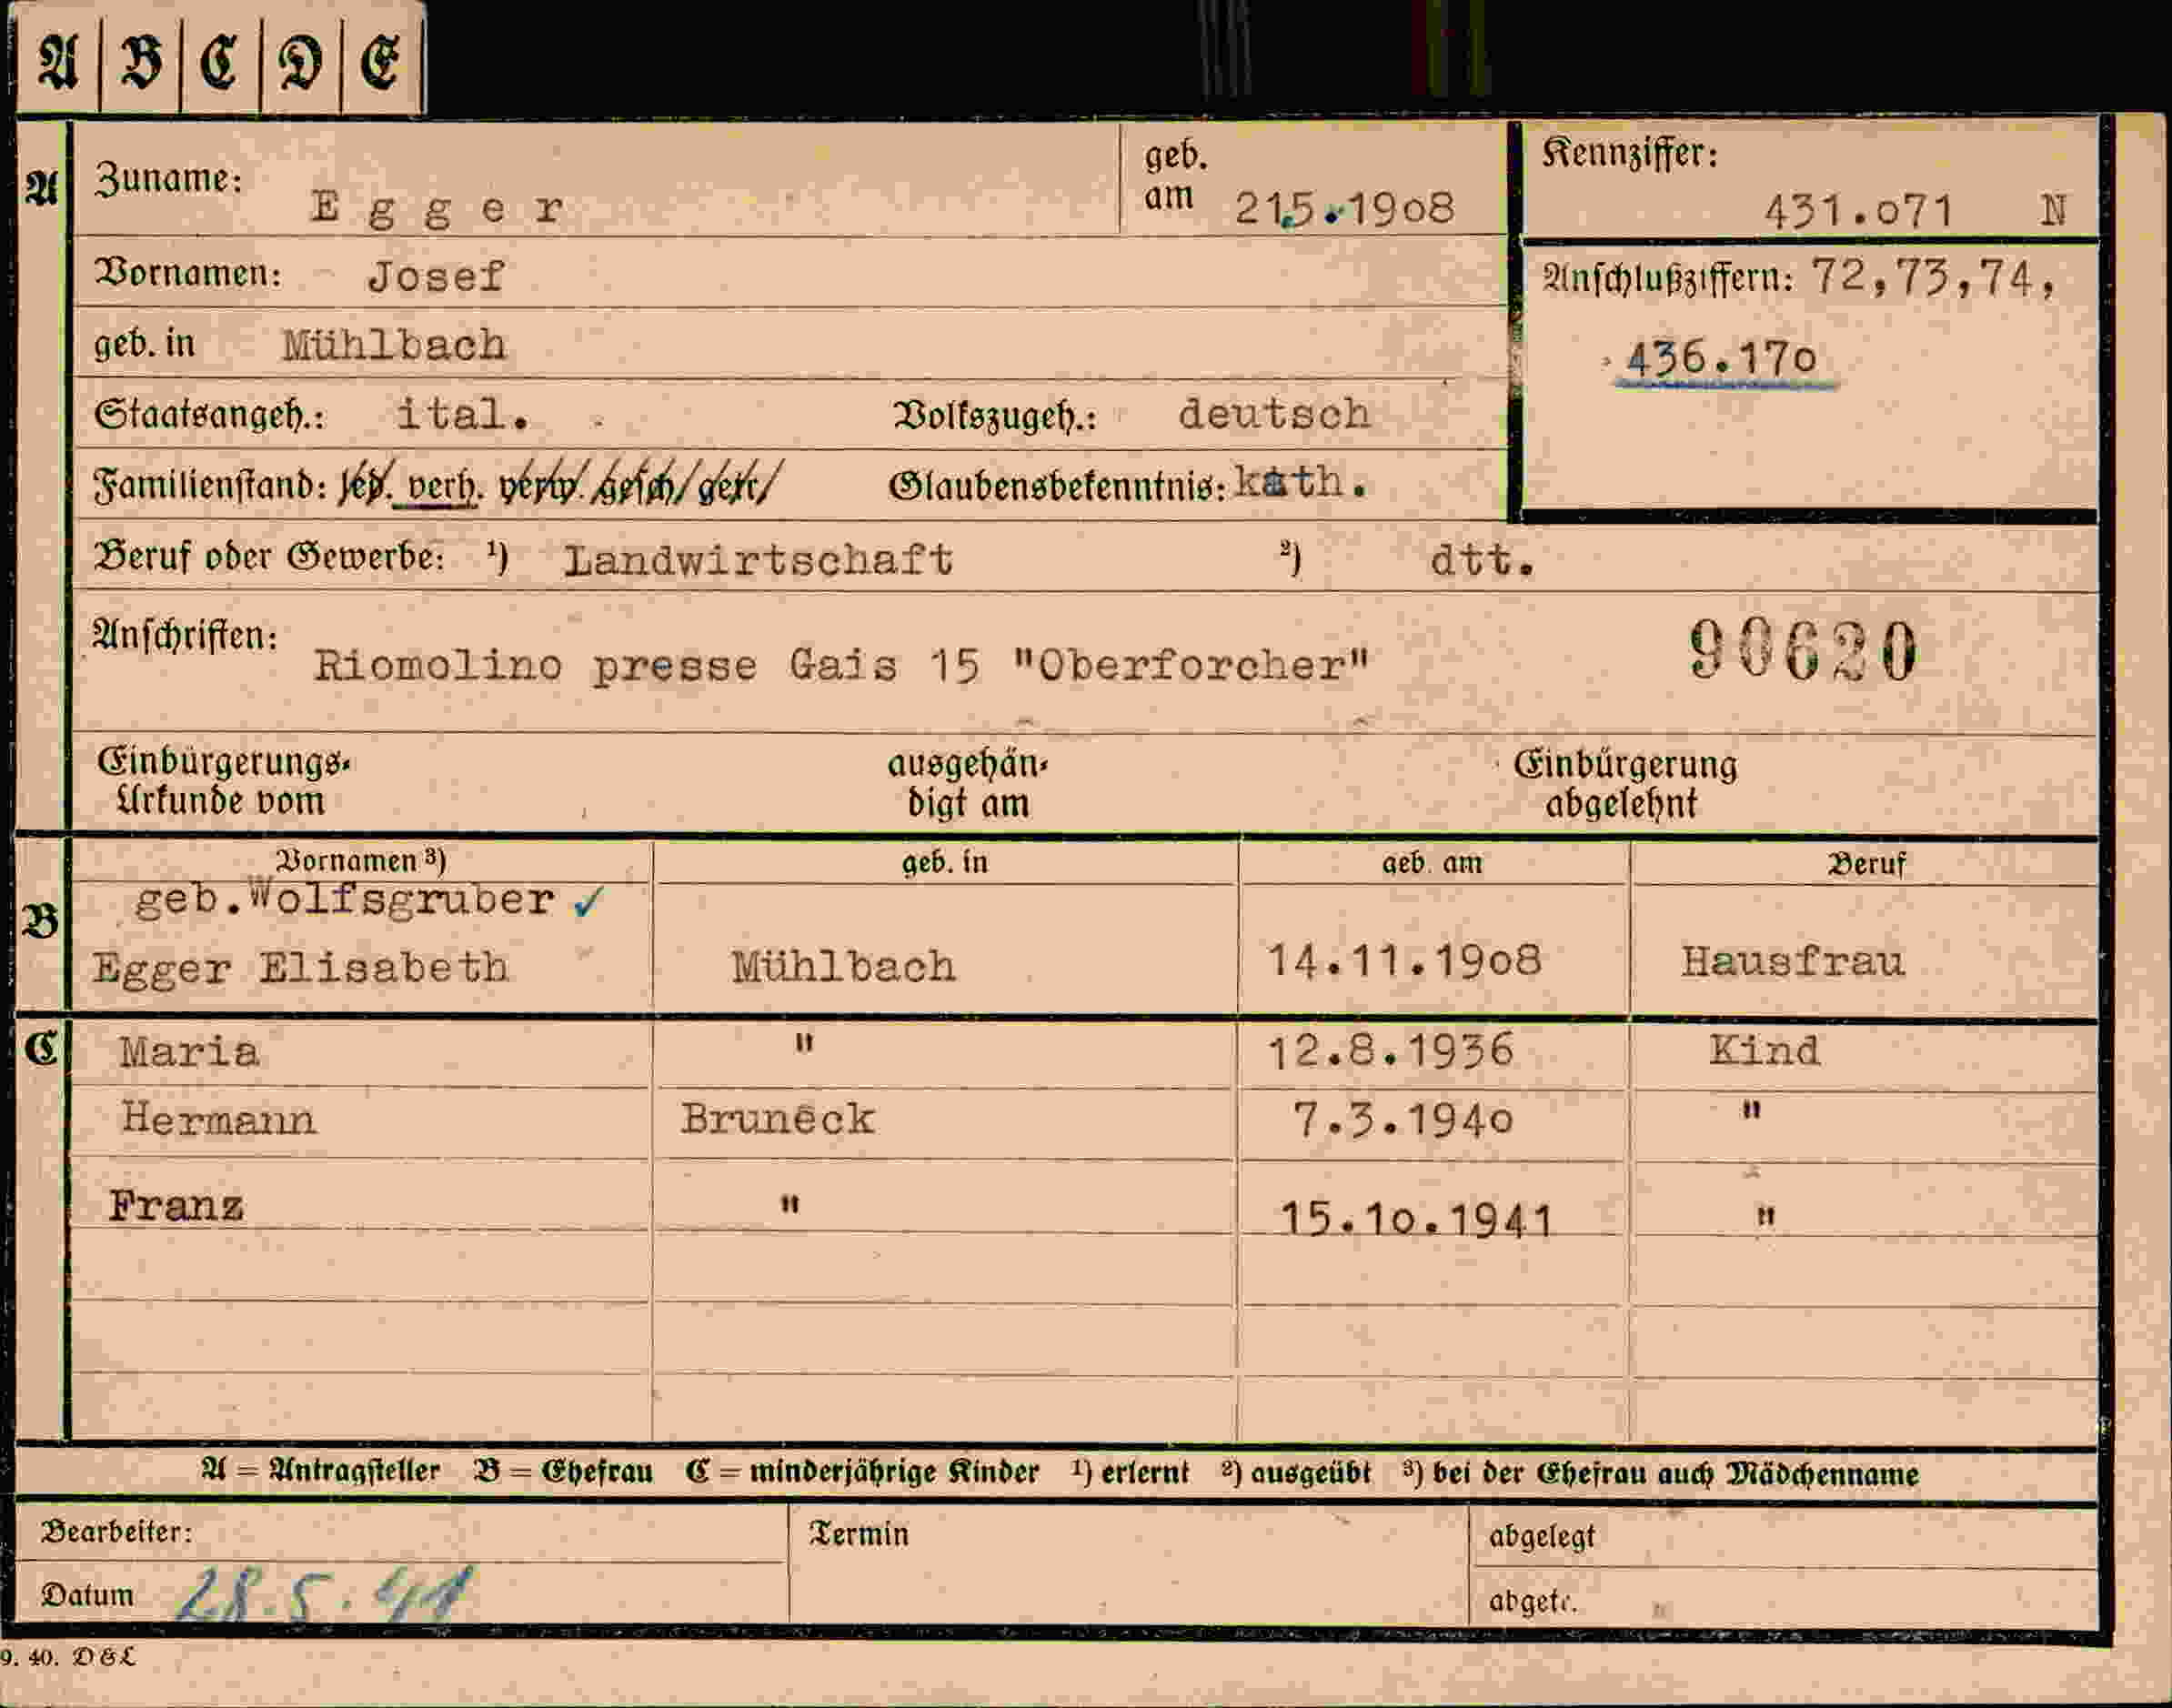 A B C D E
A Zuname: Egger geb. am 21.5.1908 Kennziffer: 431.071 N
Vornamen: Josef Anschlußziffern: 72,73,74,
geb. in Mühlbach 436.170
Staatsangeh.: ital. Volkszugeh.: deutsch
Familienstand: led. verh. verw. gesch. getr. Glaubensbekenntnis: kath.
Beruf oder Gewerbe: ¹) Landwirtschaft ²) dtt.
Anschriften: Riomolino presse Gais 15 "Oberforcher" 90620
Einbürgerungs- ausgehän- Einbürgerung
Urkunde vom digt am abgelehnt
Vornamen ³) geb. in geb. am Beruf
B geb.Wolfsgruber ✓
Egger Elisabeth Mühlbach 14.11.1908 Hausfrau
C Maria " 12.8.1936 Kind
Hermann Bruneck 7.3.1940 "
Franz " 15.10.1941 "
A = Antragsteller B = Ehefrau C = minderjährige Kinder ¹) erlernt ²) ausgeübt ³) bei der Ehefrau auch Mädchenname
Bearbeiter: Termin abgelegt
Datum 28.5.41 abgetr.
9. 40. D&L